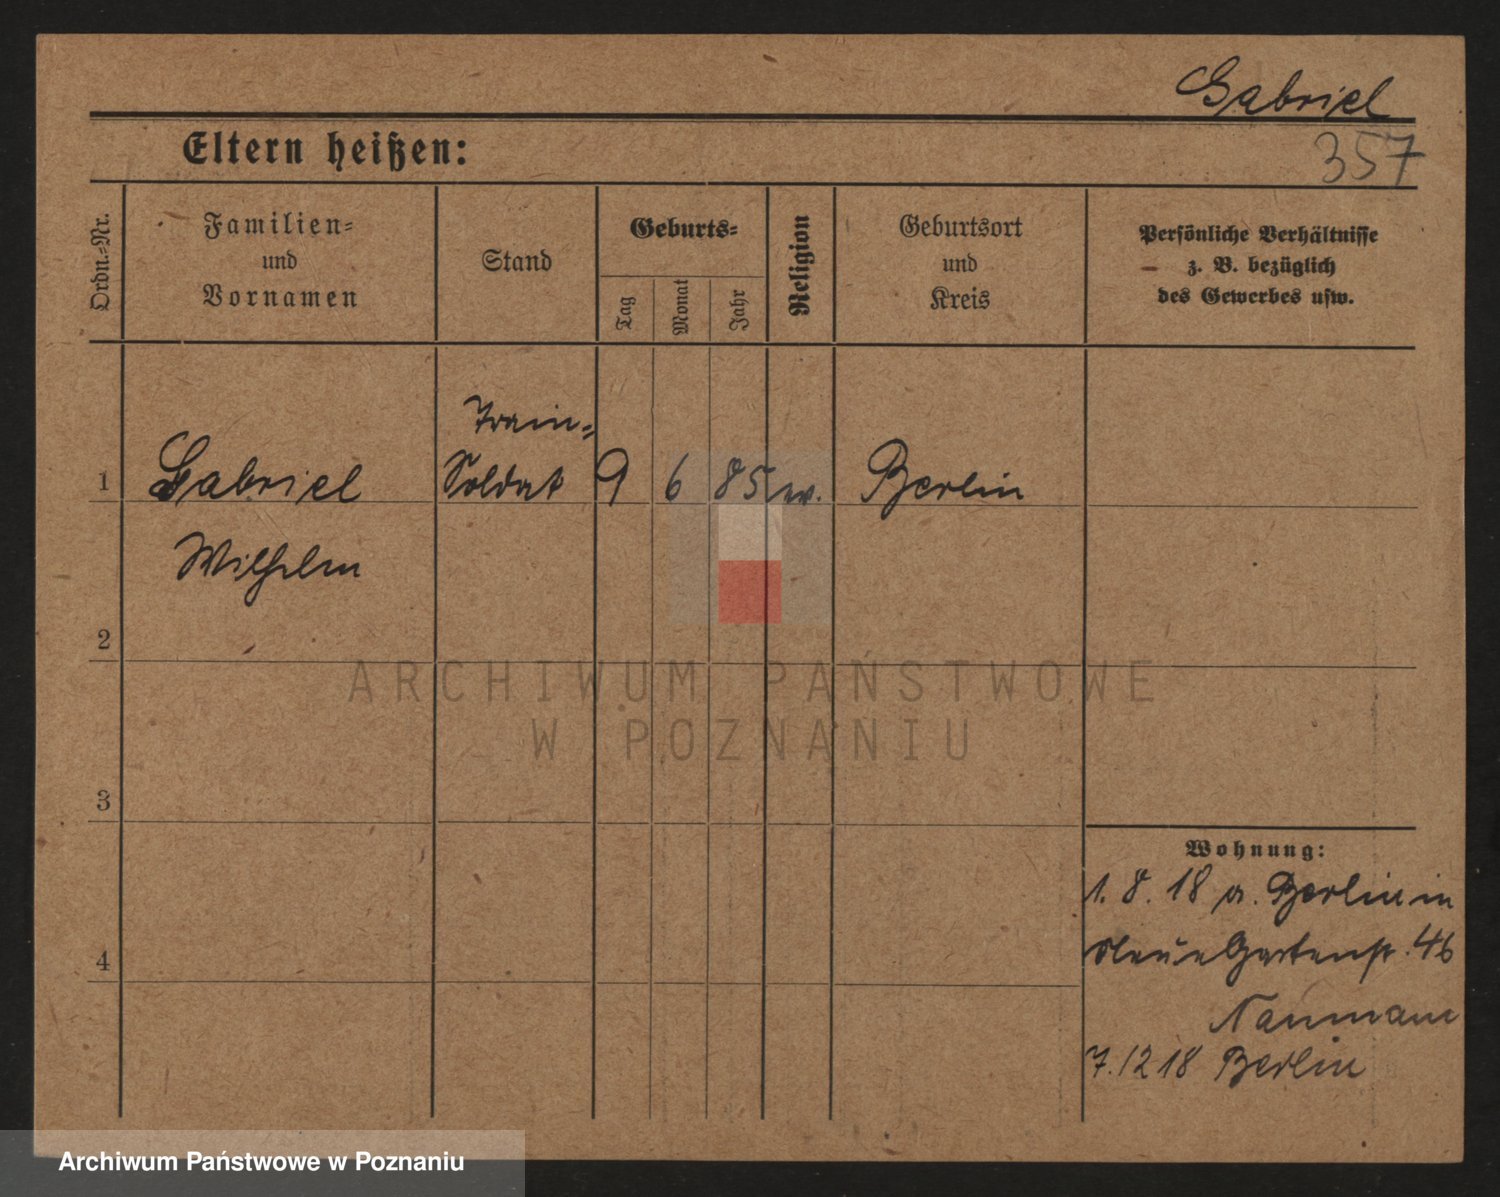 Gabriel
Eltern heißen:
357
Ordn.-Nr.
Familien-
und
Vornamen
Stand
Geburts-
Tag
Monat
Jahr
Religion
Geburtsort
und
Kreis
Persönliche Verhältnisse
z. B. bezüglich
des Gewerbes usw.
Train-
1 Gabriel Soldat 9 6 85 ev. Berlin
Wilhelm
2
ARCHIWUM PAŃSTWOWE
W POZNANIU
3
Wohnung:
1. 8. 18 a. Berlin in
Neue Gartenstr. 46
4
Naumann
7. 12 18 Berlin
Archiwum Państwowe w Poznaniu